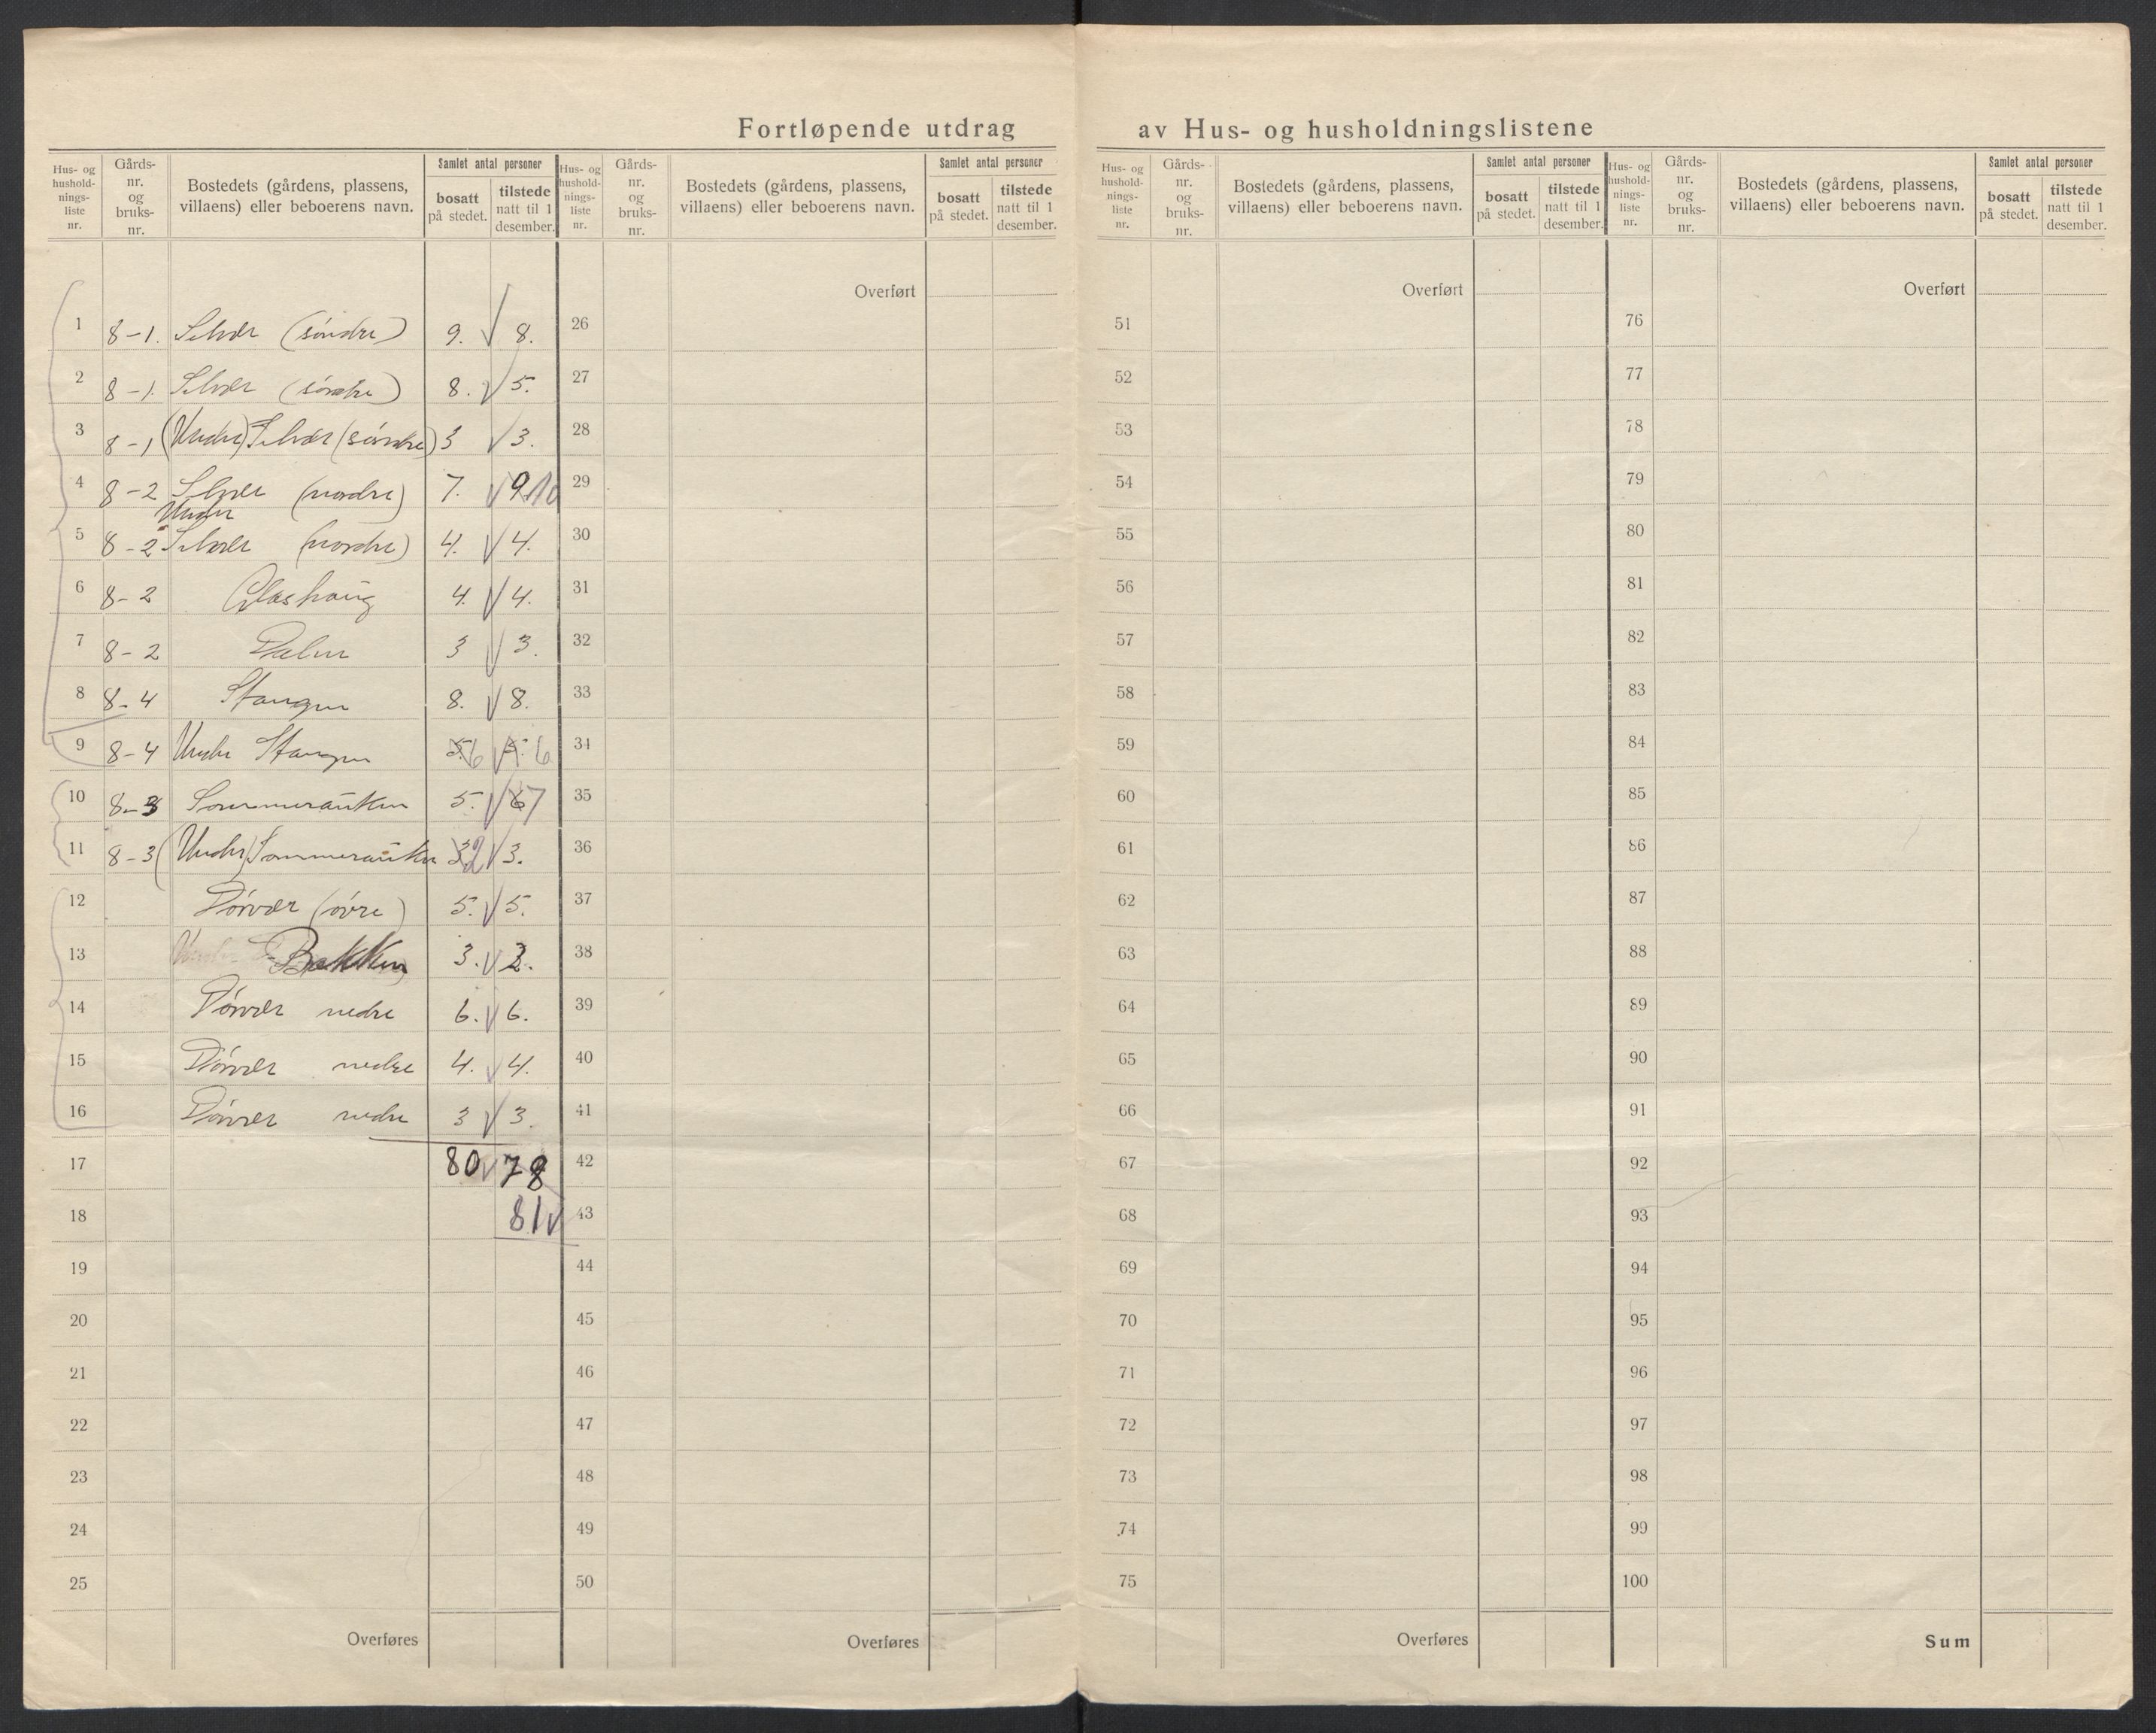 Fortløpende utdrag av Hus- og husholdningslistene
Hus- og hushold-nings-liste nr. | Gårds-nr. og bruks-nr. | Bostedets (gårdens, plassens, villaens) eller beboerens navn. | Samlet antal personer | bosatt på stedet. | tilstede natt til 1 desember.
Hus- og hushold-nings-liste nr. | Gårds-nr. og bruks-nr. | Bostedets (gårdens, plassens, villaens) eller beboerens navn. | Samlet antal personer | bosatt på stedet. | tilstede natt til 1 desember.
Hus- og hushold-nings-liste nr. | Gårds-nr. og bruks-nr. | Bostedets (gårdens, plassens, villaens) eller beboerens navn. | Samlet antal personer | bosatt på stedet. | tilstede natt til 1 desember.
Hus- og hushold-nings-liste nr. | Gårds-nr. og bruks-nr. | Bostedets (gårdens, plassens, villaens) eller beboerens navn. | Samlet antal personer | bosatt på stedet. | tilstede natt til 1 desember.
1 8-1. Selvær (søndre) 9. √ 8.
2 8-1. Selvær (søndre) 8. √ 5.
3 8-1 (Under) Selvær (søndre) 3 √ 3.
4 8-2 Selvær (nordre) 7. √ 9 10
5 8-2 Under Selvær (nordre) 4. √ 4.
6 8-2 Glashaug 4. √ 4.
7 8-2 Dalen 3 √ 3.
8 8-4 Stangen 8. √ 8.
9 8-4 Under Stangen 5. 6 √ 5. 6
10 8-3 Sommerauken 5. √ 6 7
11 8-3 (Under) Sommerauken 3 2 √ 3.
12 Dørvær (øvre) 5. √ 5.
13 Bakken 3. √ 2.
14 Dørvær nedre 6. √ 6.
15 Dørvær nedre 4. √ 4.
16 Dørvær nedre 3 √ 3.
17 80 √ 78
18 81 √
19
20
21
22
23
24
25
Overføres
Overført
26
27
28
29
30
31
32
33
34
35
36
37
38
39
40
41
42
43
44
45
46
47
48
49
50
Overføres
Overført
51
52
53
54
55
56
57
58
59
60
61
62
63
64
65
66
67
68
69
70
71
72
73
74
75
Overføres
Overført
76
77
78
79
80
81
82
83
84
85
86
87
88
89
90
91
92
93
94
95
96
97
98
99
100
Sum